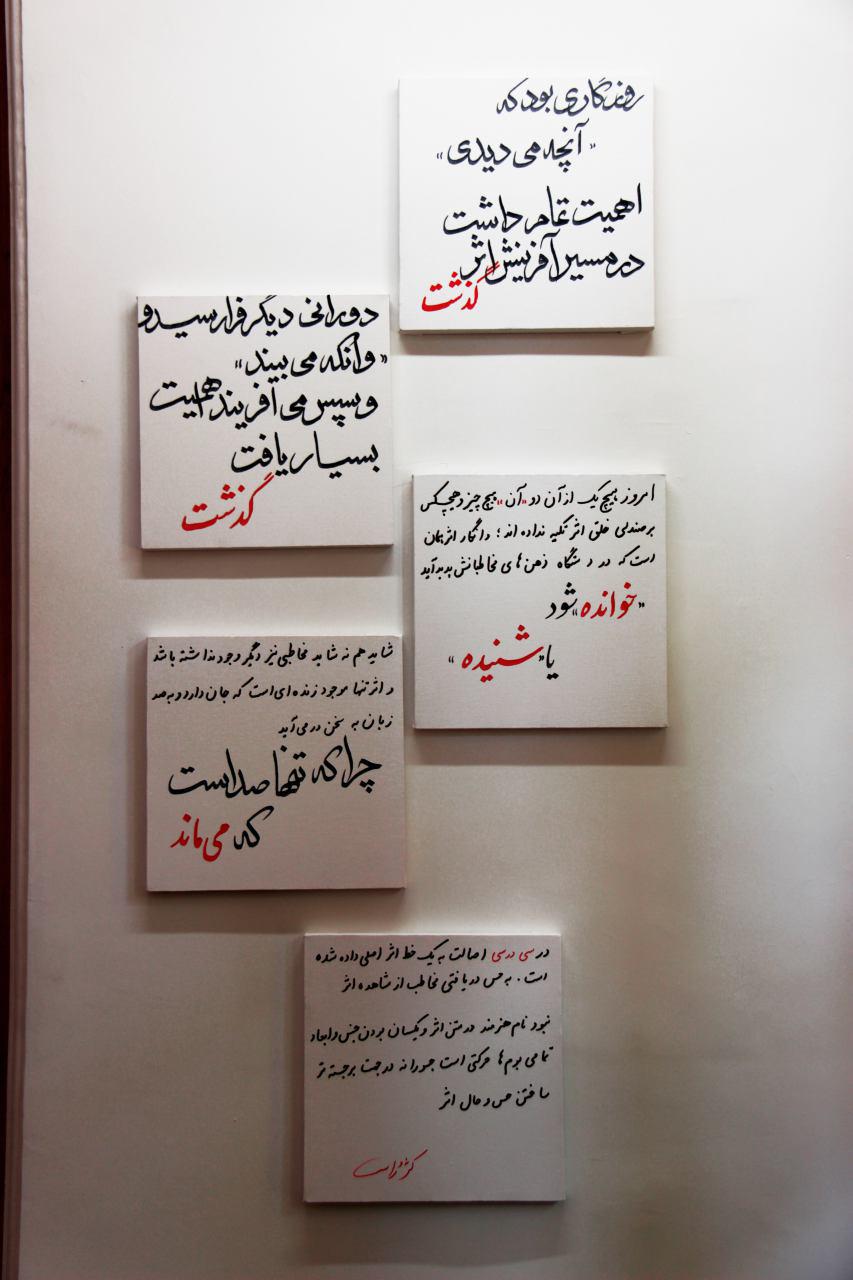 روزگاری بود که
«آنچه می دیدی»
اهمیت تمام داشت
در مسیر آفرینش اثر
گذشت
دورانی دیگر فرا رسید و
«وآنکه می بیند»
و سپس می آفریند اهمیت
بسیار یافت
گذشت
امروز هیچ یک از آن دو «آن» هیچ چیز و هیچکس
بر صندلی خلق اثر تکیه نداده اند؛ و انگار اثر همان
است که در دستگاه ذهن های مخاطبانش پدید آید
«خوانده» شود
یا «شنیده»
شاید هم نه شاید مخاطبی نیز دیگر وجود نداشته باشد
و اثر تنها موجود زنده ای است که جان دارد و به صد
زبان به سخن در می آید
چرا که تنها صداست
که می ماند
در سی درسی اصالت به یک خط اثر اصلی داده شده
است. به حس دریافتی مخاطب از مشاهده اثر
نبود نام هنرمند در متن اثر و یکسان بودن جنس و ابعاد
تمامی بوم ها حرکتی است جسورانه در جهت برجسته تر
ساختن حس و حال اثر